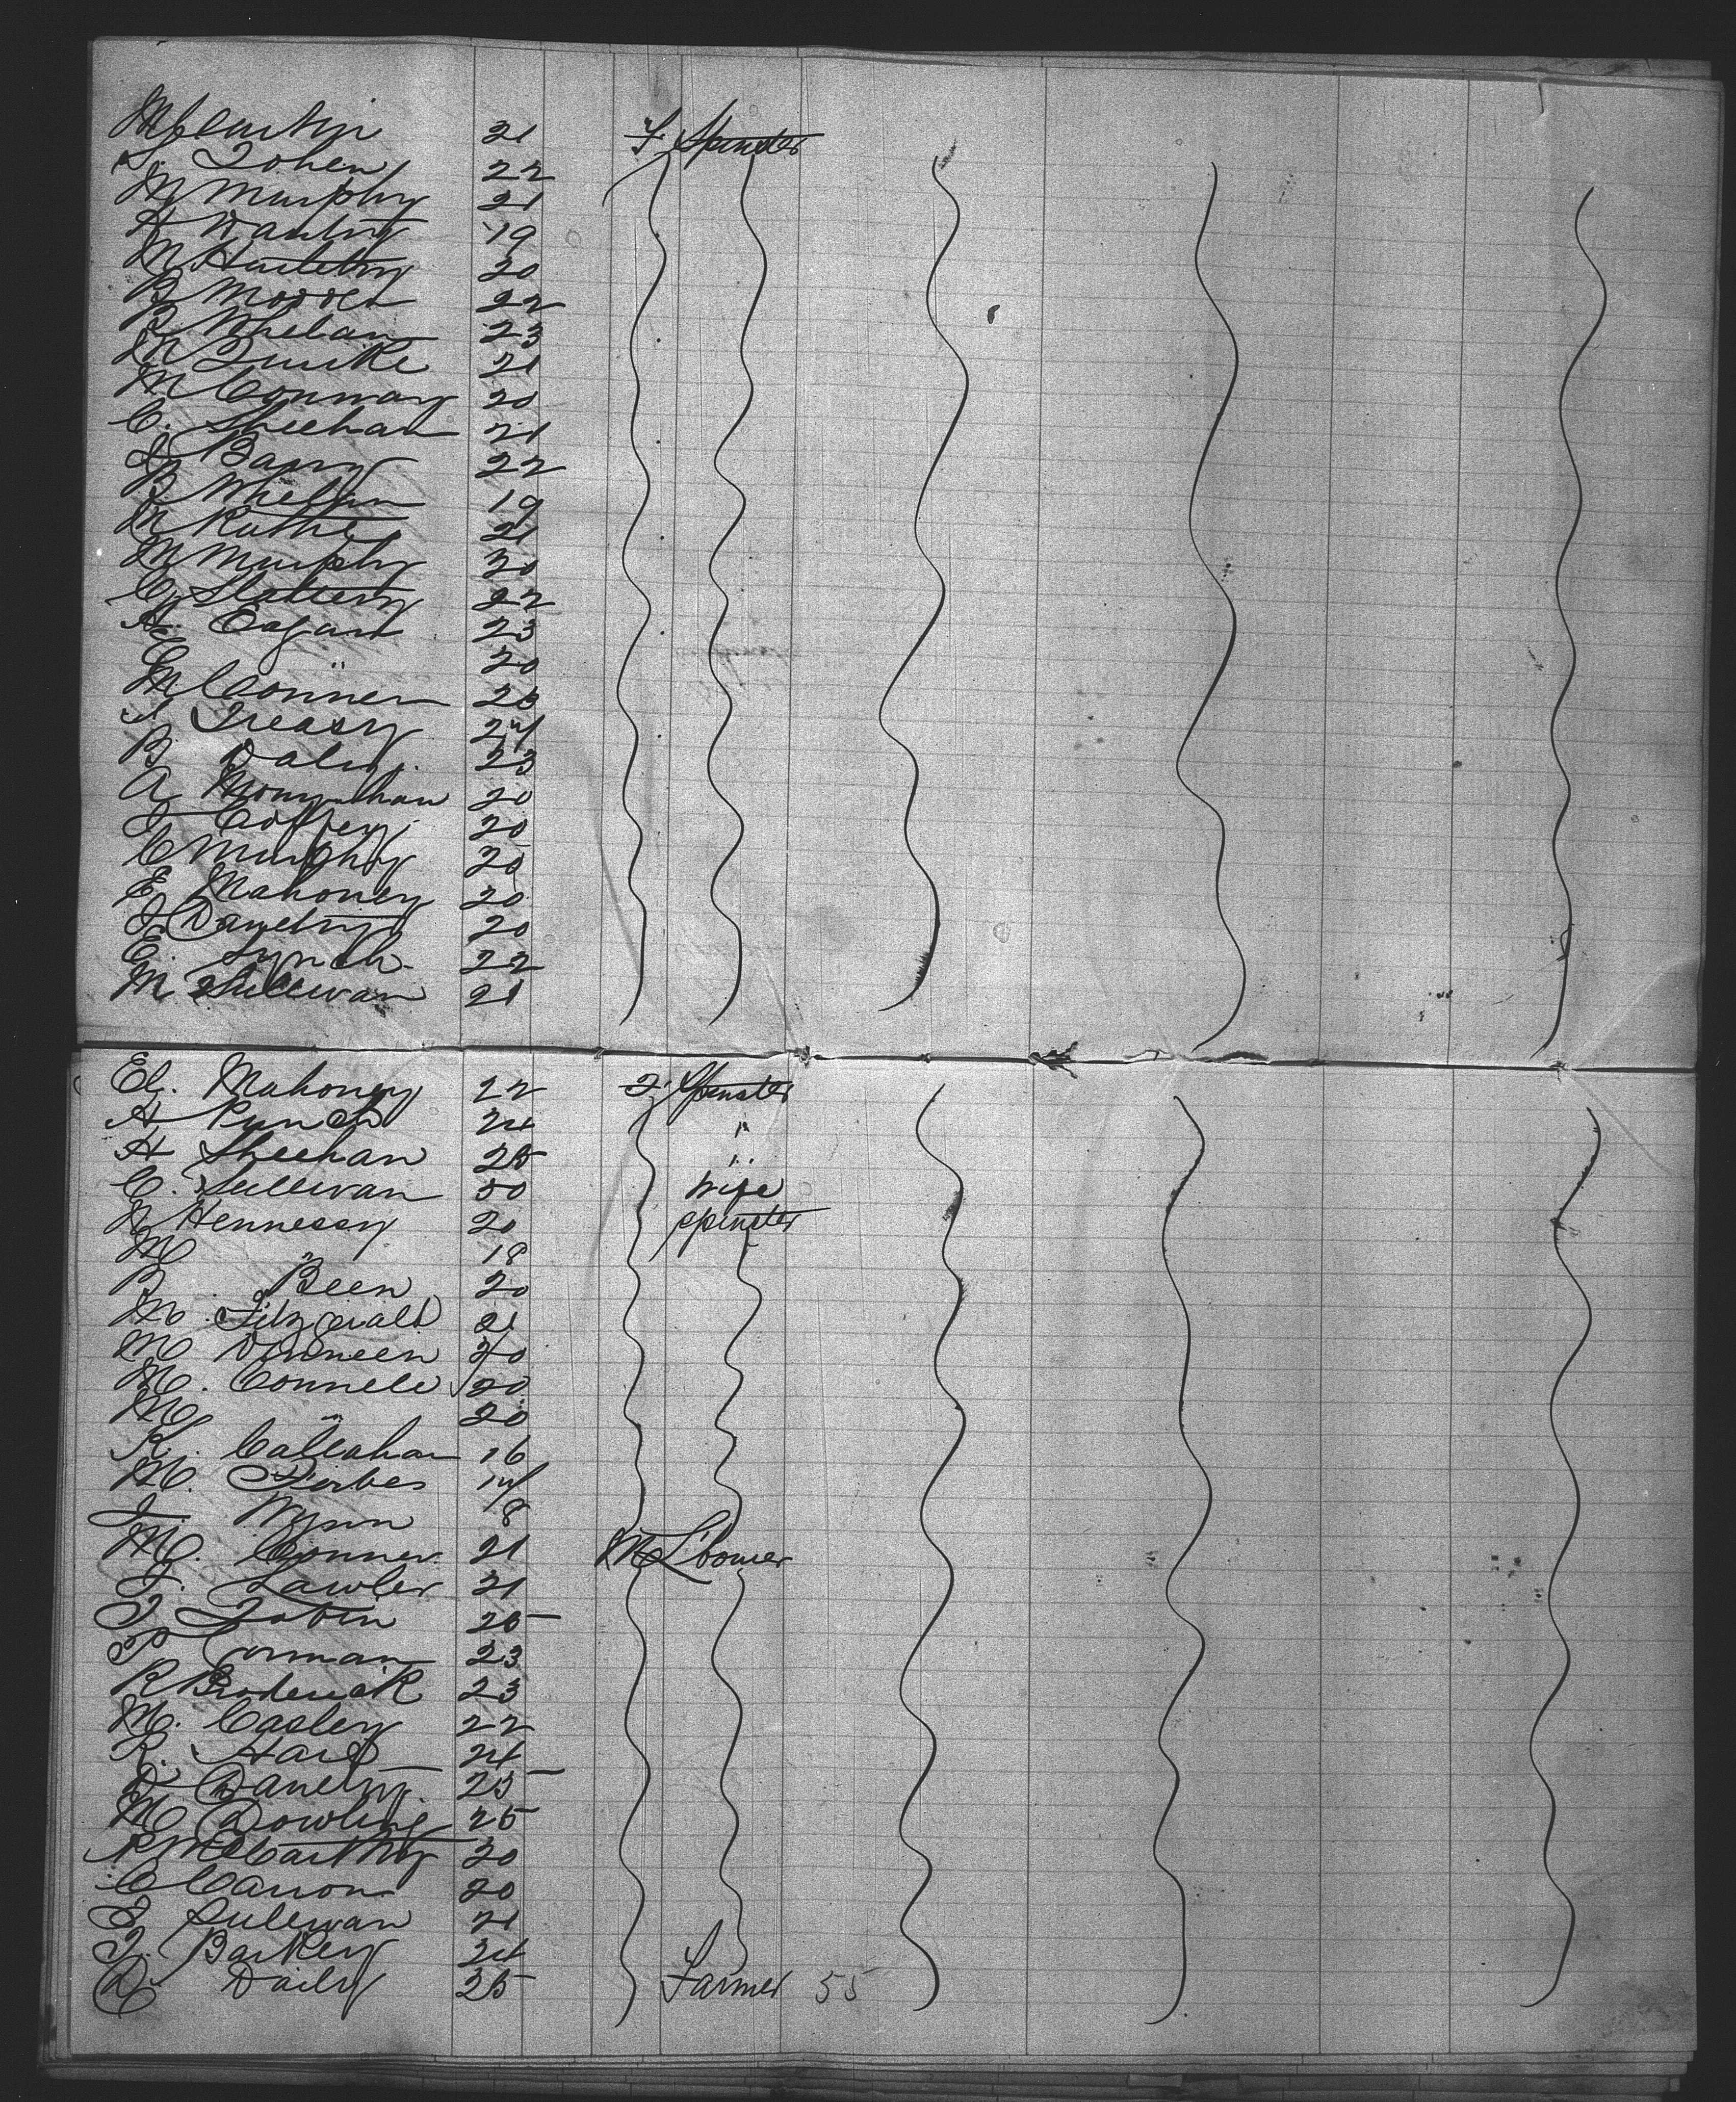 M 21 F Spinster
22
M Murphy 21
19
M 20
B 22
B Whelan 23
M 21
M Conway 20
C. Sheehan 21
Barry 22
B Whelan 19
M 21
M Murphy 20
C Slattery 22
A. Eagan 23
E " 20
M Conner 20
J Treasy 24
B Daly. 23
A Moynihan 20
J Coffey 20
C Murphy 20
E Mahoney 20
J 20
E. Lynch 22
M Sullivan 21
El. Mahoney 22 F Spinster
A Punch 24 "
H Sheehan 25 "
C. Sullivan 50 Wife
N Hennessy 20 Spinster
M " 18
B Been 20
M. Fitzgerald 21
M Dinneen 20
M. Connell 20
M " 20
K. Callahan 16
M. Forbes 14
J. Wynn 18
M. Conner 21 M Lbourer
J. Lawler 21
J Tobin 25
P Gorman 23
R Broderick 23
M. Casley 22
R. Hard 24
D 25
M Dowling 25
P McCarthy 20
C Carron 20
J Sullivan 21
J. Barkery 24
D. Daily 35 Farmer 55